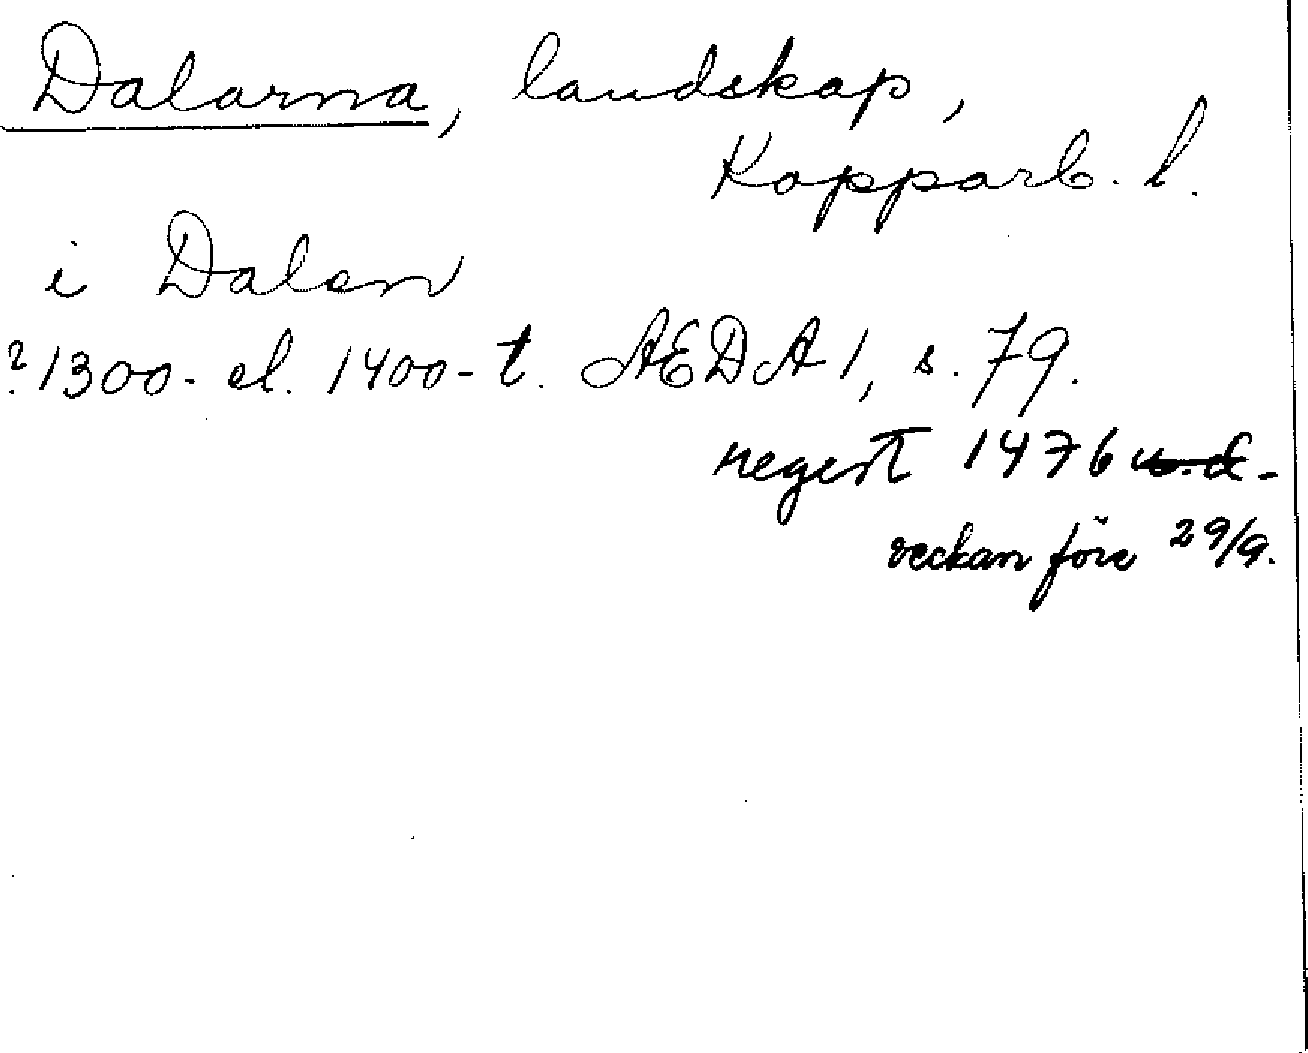 Dalarna, landskap,
Kopparb. l.
i Dalen
? 1300- el. 1400-t. AEDA 1, s. 79.
regest 1476 u.d.
veckan före 29/9.